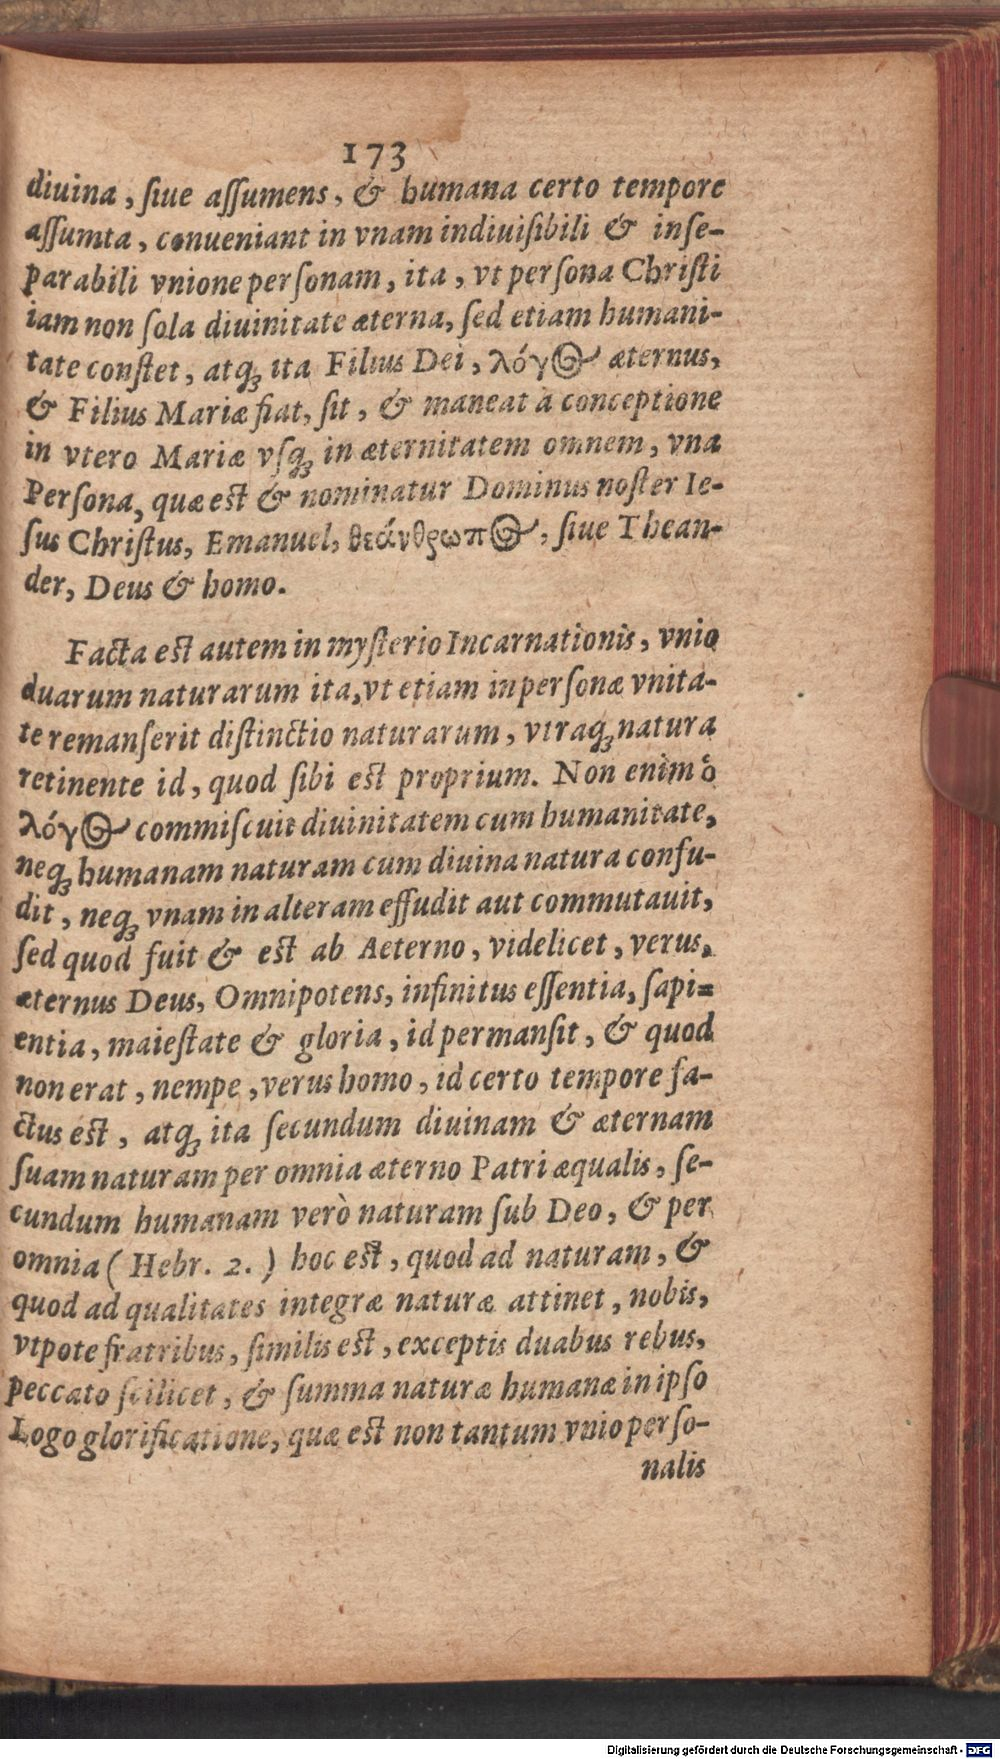 173
diuina, ſiue aſſumens, & humana certo tempore
aſſumta, conueniant in vnam indiuiſibili & inſe-
parabili vnione perſonam, ita, vt perſona Chriſti
iam non ſola diuinitate æterna, ſed etiam humani-
tate conſtet, atqꝫ ita Filius Dei, λόγ⊚ æternus,
& Filius Mariæ fiat, ſit, & maneat à conceptione
in vtero Mariæ vſqꝫ in æternitatem omnem, vna
Perſona, quæ eſt & nominatur Dominus noſter Ie-
ſus Chriſtus, Emanuel, θεάνθρωπ⊚, ſiue Thean-
der, Deus & homo.
Facta eſt autem in myſterio Incarnationis, vnio
duarum naturarum ita, vt etiam in perſonæ vnita-
te remanſerit diſtinctio naturarum, vtraqꝫ natura
retinente id, quod ſibi eſt proprium. Non enim ὁ
λόγ⊚ commiſcuit diuinitatem cum humanitate,
neqꝫ humanam naturam cum diuina natura confu-
dit, neqꝫ vnam in alteram effudit aut commutauit,
ſed quod fuit & eſt ab Aeterno, videlicet, verus,
æternus Deus, Omnipotens, infinitus eſſentia, ſapi-
entia, maieſtate & gloria, id permanſit, & quod
non erat, nempe, verus homo, id certo tempore fa-
ctus eſt, atqꝫ ita ſecundum diuinam & æternam
ſuam naturam per omnia æterno Patri æqualis, ſe-
cundum humanam verò naturam ſub Deo, & per
omnia (Hebr. 2.) hoc eſt, quod ad naturam, &
quod ad qualitates integræ naturæ attinet, nobis,
vtpote fratribus, ſimilis eſt, exceptis duabus rebus,
peccato ſcilicet, & ſumma naturæ humanæ in ipſo
Logo glorificatione, quæ eſt non tantum vnio perſo-
nalis
Digitalisierung gefördert durch die Deutsche Forschungsgemeinschaft - DFG